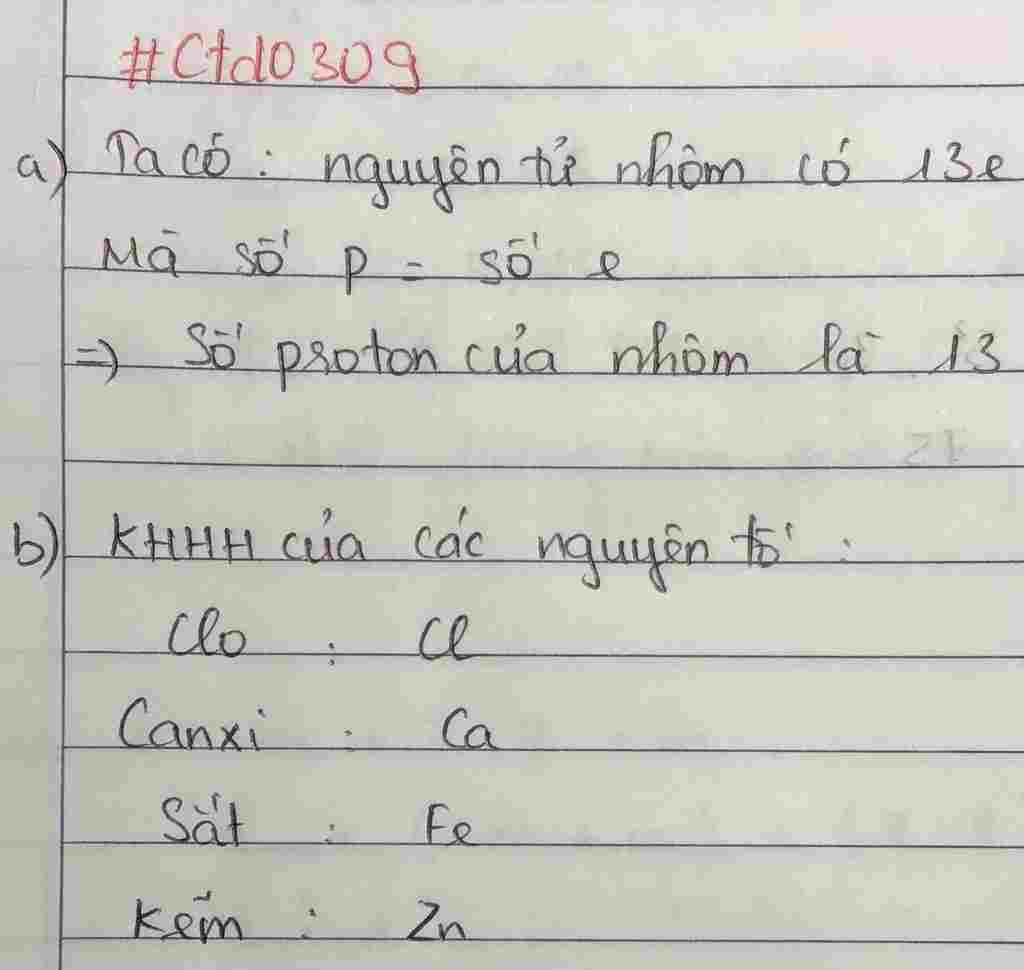 #Ctd0309
a) Ta có : nguyên tử nhôm có 13e
Mà số p = số e
=) Số proton của nhôm là 13
b) KHHH của các nguyên tố :
Clo : Cl
Canxi : Ca
Sắt : Fe
Kẽm : Zn